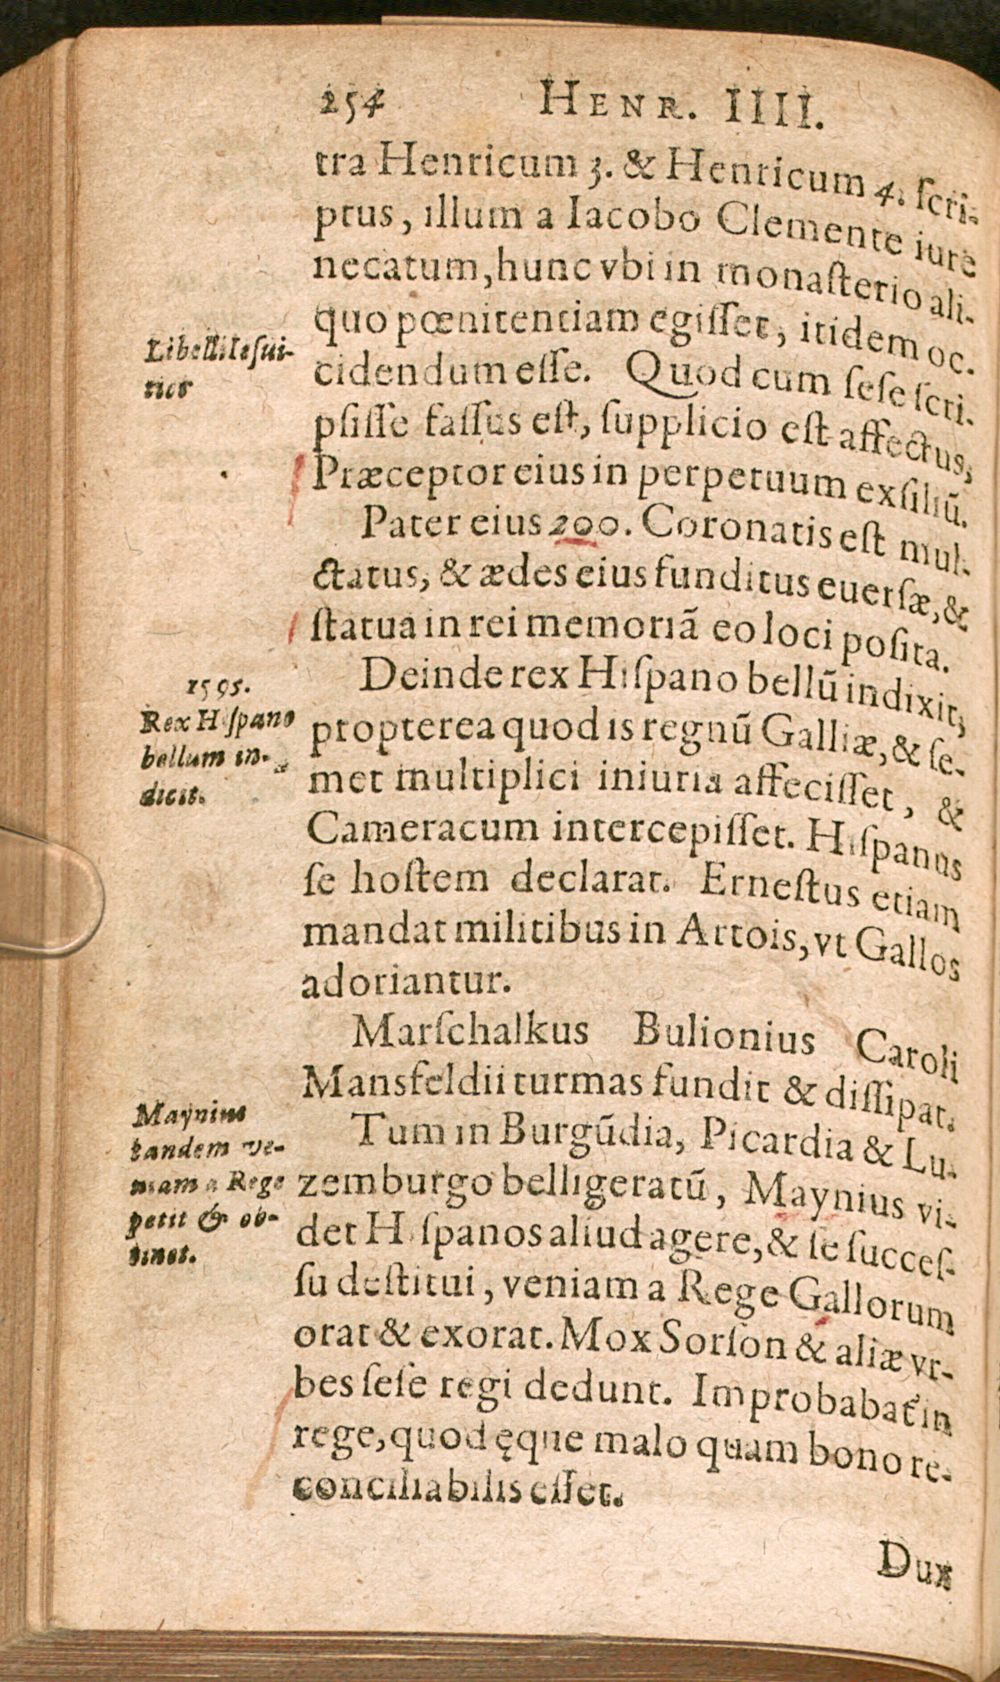 254 HENR. IIII.
tra Henricum 3. & Henricum 4. ſcri-
ptus, illum a Iacobo Clemente iure
necatum, hunc vbi in monaſterio ali-
quo pœnitentiam egiſſet, itidem oc-
cidendum eſſe. Quod cum ſeſe ſcri-
pſiſſe faſſus eſt, ſupplicio eſt affectus,
Præceptor eius in perpetuum exſiliū.
Pater eius 200. Coronatis eſt mul-
ctatus, & ædes eius funditus euerſæ, &
ſtatua in rei memoriā eo loci poſita.
Deinde rex Hiſpano bellū indixit,
propterea quod is regnū Galliæ, & ſe-
met multiplici iniuria affeciſſet, &
Cameracum intercepiſſet. Hiſpanus
ſe hoſtem declarat. Erneſtus etiam
mandat militibus in Artois, vt Gallos
adoriantur.
Marſchalkus Bulionius Caroli
Mansfeldii turmas fundit & diſſipat.
Tum in Burgūdia, Picardia & Lu-
zemburgo belligeratū, Maynius vi-
det Hiſpanos aliud agere, & ſe ſucceſ-
ſu deſtitui, veniam a Rege Gallorum
orat & exorat. Mox Sorſon & aliæ vr-
bes ſeſe regi dedunt. Improbabāt in
rege, quod ęque malo quam bono re-
conciliabilis eſſet.
Dux
Libelli Ieſui-
ticr
1595.
Rex Hiſpano
bellum in-
dicit.
Maynius
tandem ve-
niam a Rege
petit & ob-
tinet.